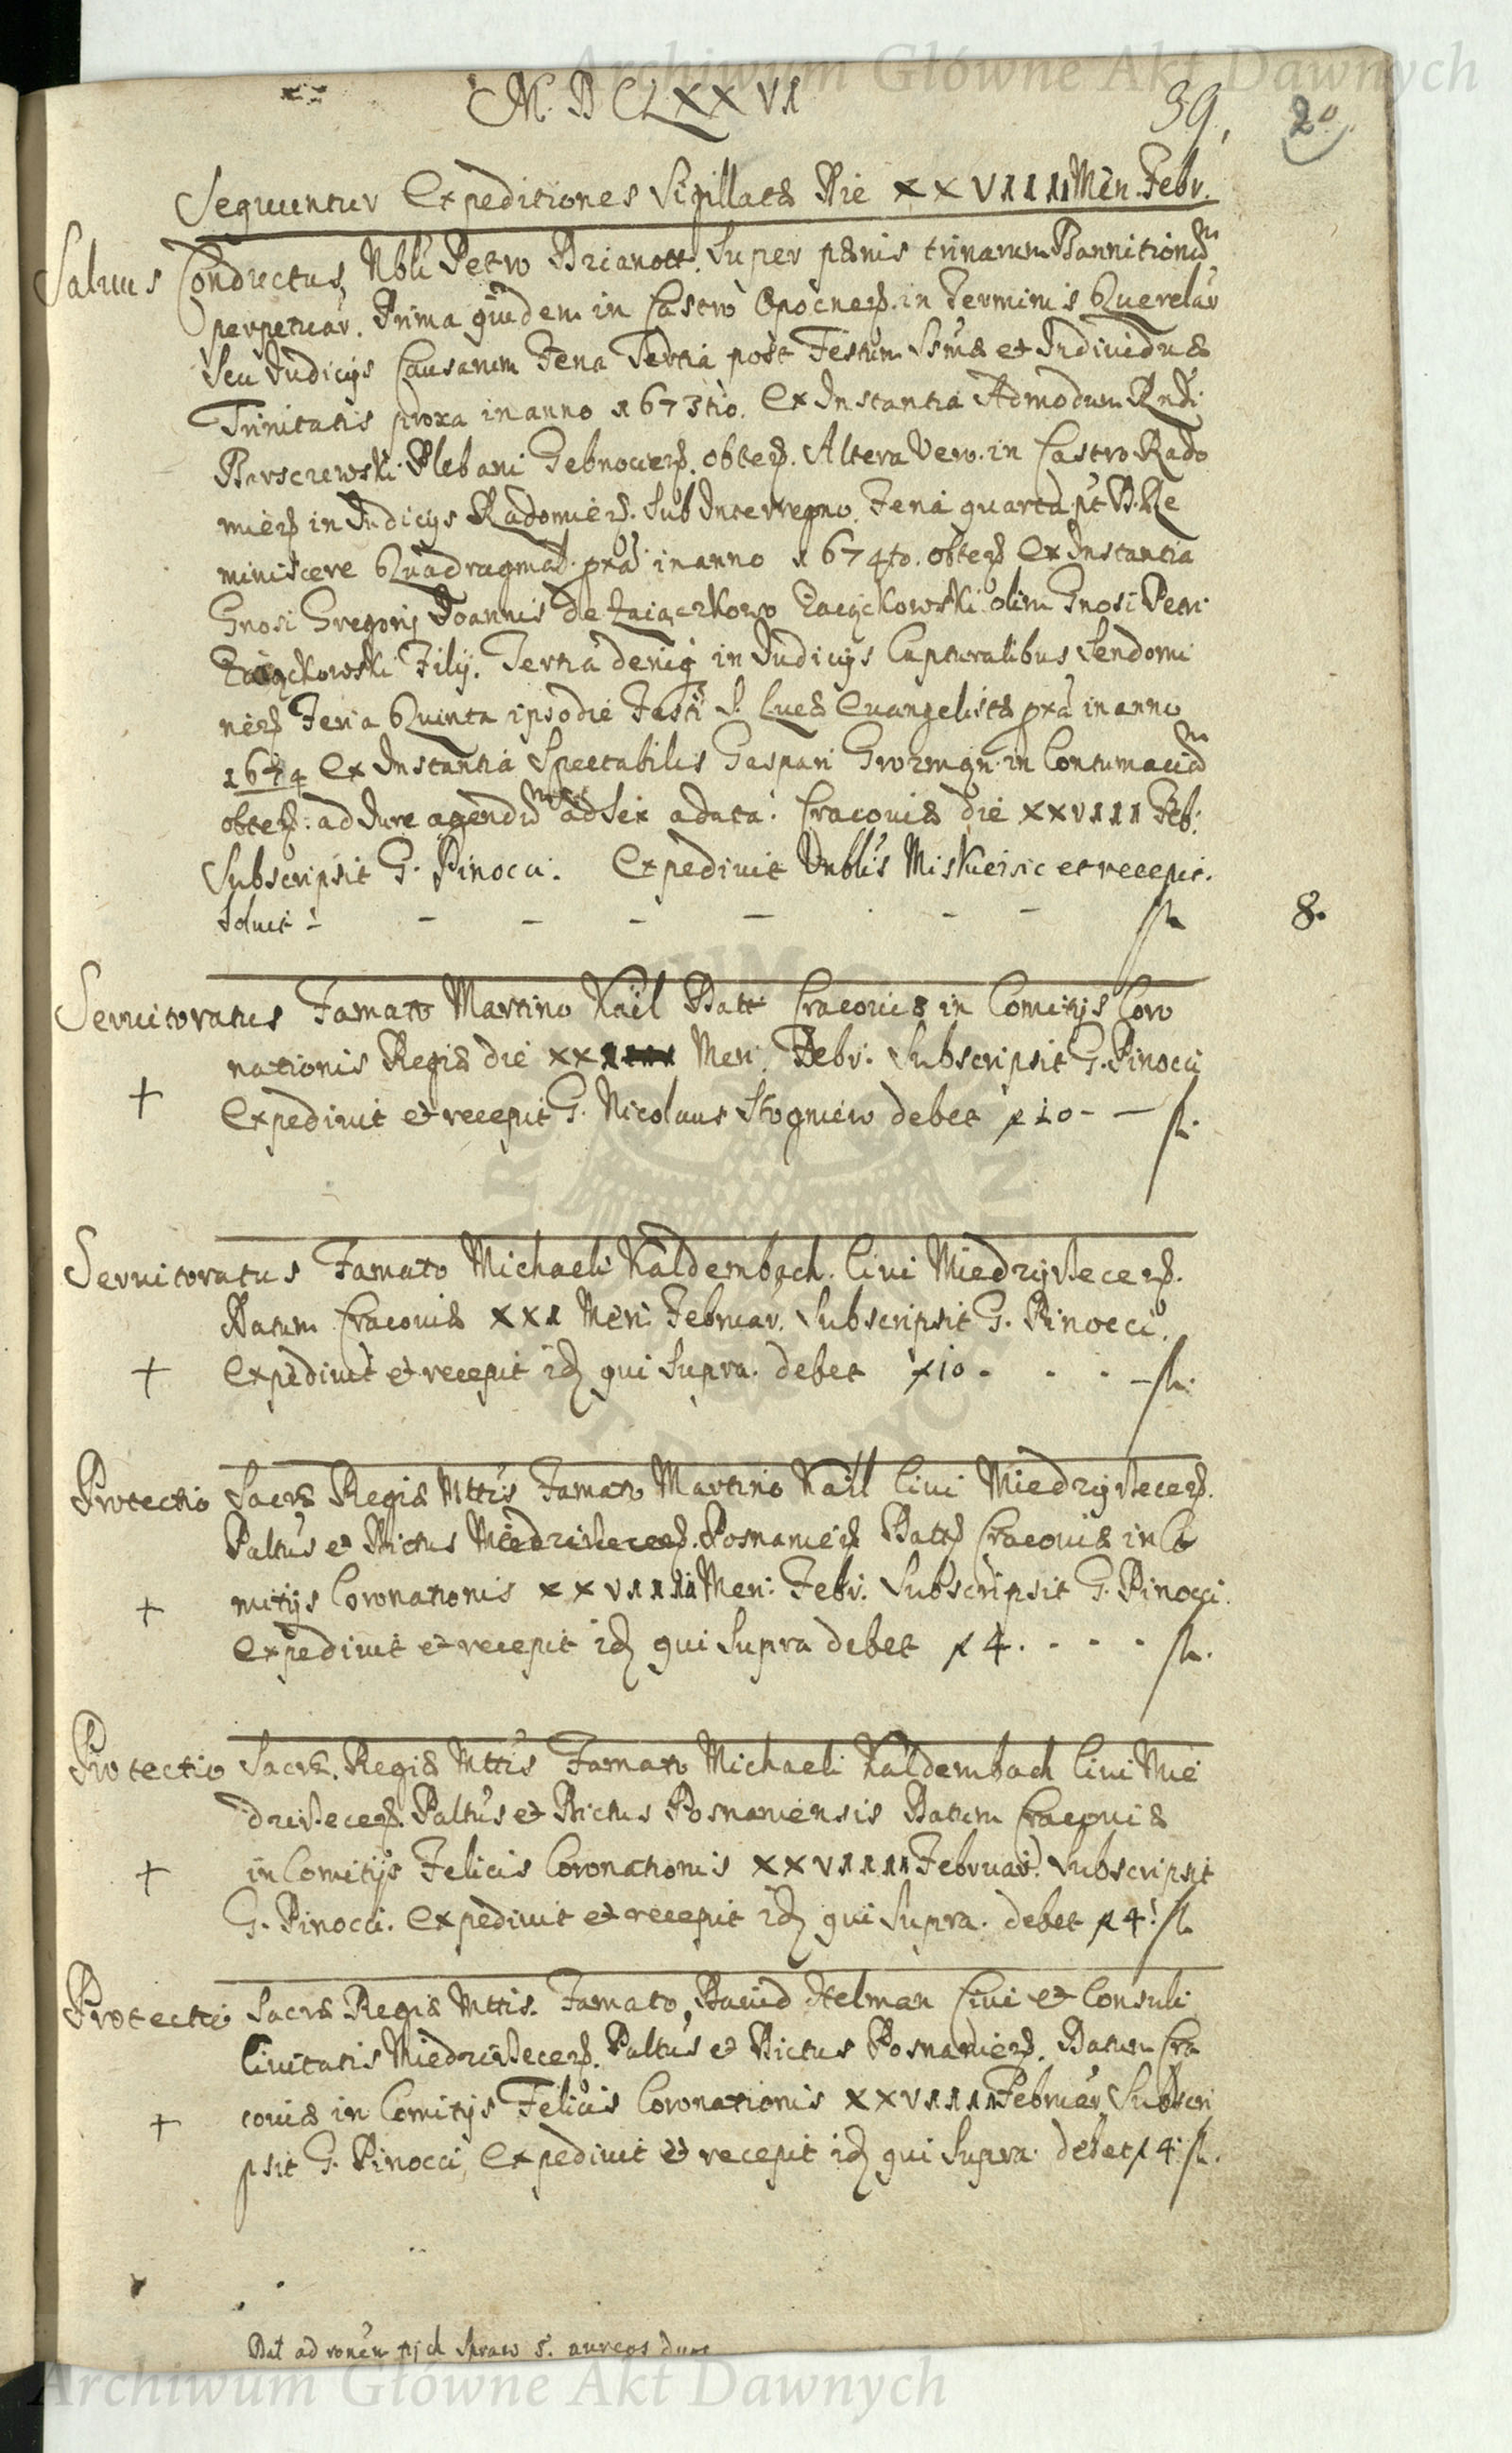 Archiwum Główne Akt Dawnych
M. D CLXXVI
39,
20
Sequuntur Expeditiones Sigillatæ Die XXVIIII Men. Febr.
Saluus Conductus, Nbli Petro Brianott. Super pænis trinarum Bannitionũ
perpetuar. Prima quidem in Castro Opocnens. in Terminis Querelar
Seu Judicijs Causarum Feria Tertia post Festum Ssmæ et Indiuiduæ
Trinitatis proxa in anno 1673tio. Ex Instantia Admodum Rndi
Barsczewski Plebani Gebnouiens. obtens. Altera Vero in Castro Rado
miens in Judicijs Radomiens. Sub Interregno, Feria quarta pt D. Re
miniscere Quadragmal. pxa in anno 1674to. obtens Ex Instantia
Gnosi Gregorij Joannis De Zaiączkowo Zaiąckowski olim Gnosi Petri
Zaiąckowski Filij. Tertia deniq in Judicijs Capturalibus Sendomi
riens Feria Quinta ipsodie Festi S. Lucæ Euangelistæ pxa in anno
1674 Ex Instantia Spectabilis Gaspari Grozman in Contumaciã
obtens. ad Jure agendũ ad Sex a data. Cracouiæ die XXVIII Feb.
Subscripsit G. Pinocci. Expediuit Vnblis Miskieisic et recepit.
Soluit - - - - - - - fl. 8.
Seruitoratus Famato Martino Kail Datt Cracouiæ in Comitijs Coro
nationis Regiæ die XXI Men. Febr. Subscripsit G. Pinocci
+ Expediuit et recepit G. Nicolaus Stogniew debet # 10 - - fl.
Seruitoratus Famato Michaeli Kaldembach. Ciui Miedzyrzecens.
Datum Cracouiæ XXI Men. Februar. Subscripsit G. Pinocci.
+ Expediuit et recepit id qui Supra. debet # 10 . . . - fl.
Protectio Sacræ Regiæ Mttis Famato Martino Kail Ciui Miedzyrzecens.
Paltus et Dictus Miedzirzecens. Posnaniens Datt Cracouiæ in Co
mitijs Coronationis XXVIIII Men. Febr. Subscripsit G. Pinocci.
+ Expediuit et recepit id qui Supra debet # 4. . . . fl.
Protectio Sacræ. Regiæ Mttis Famato Michaeli Kaldembach Ciui Mie
dzirzecens. Paltus et Dictus Posnaniensis Datum Cracouiæ
+ in Comitijs Felicis Coronationis XXVIIII Februar. Subscripsit
G. Pinocci. Expediuit et recepit id qui Supra. debet # 4. fl.
Protectio Sacræ Regiæ Mttis. Famato, Dauid Helman Ciui et Consuli
Ciuitatis Miedzirzecens. Paltus et Dictus Posnaniens. Datum Cra
+ couiæ in Comitijs Felicis Coronationis XXVIIII Februar, Subscri
psit G. Pinocci, Expediuit et recepit id qui Supra. debet # 4. fl.
Dat ad tych Spraw 5. aureos
Archiwum Główne Akt Dawnych